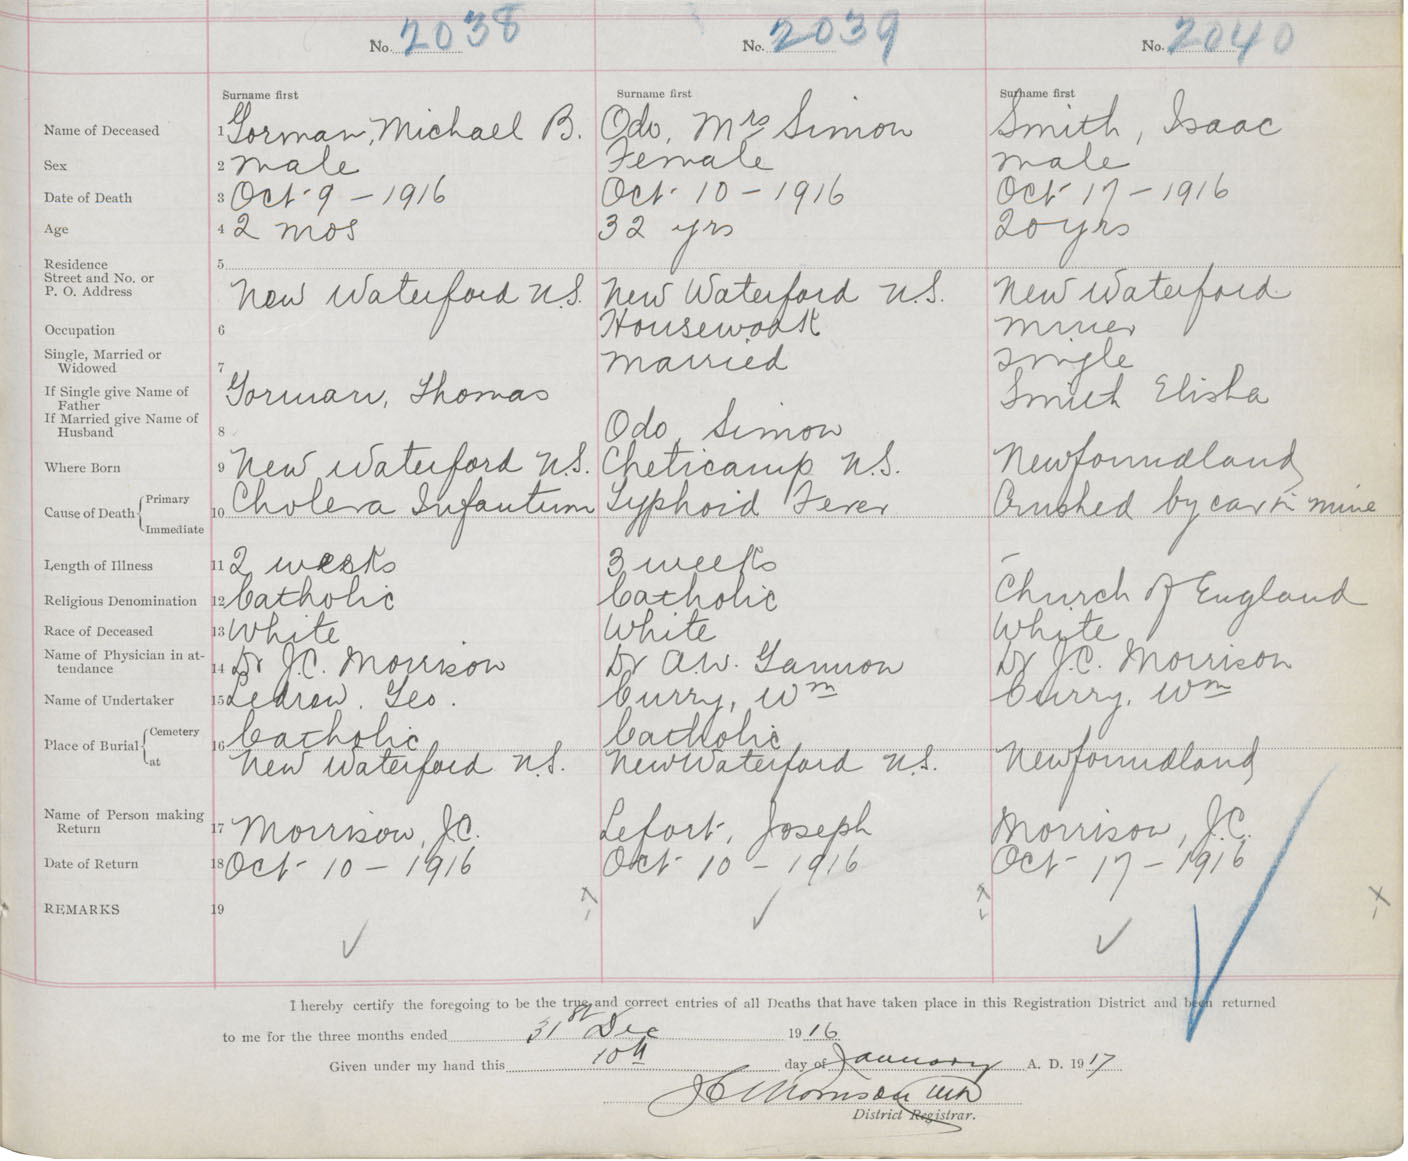 No. 2038 No. 2039 No. 2040
Surname first Surname first Surname first
Name of Deceased 1 Gorman, Michael B. Odo, Mrs Simon Smith, Isaac
Sex 2 male Female male
Date of Death 3 Oct 9 - 1916 Oct 10 - 1916 Oct 17 - 1916
Age 4 2 mos 32 yrs 20 yrs
Residence 5
Street and No. or
P. O. Address New Waterford N.S. New Waterford N.S. New Waterford
Occupation 6 Housework miner
Single, Married or
Widowed 7 married single
If Single give Name of
Father Gorman, Thomas Smith Elisha
If Married give Name of
Husband 8 Odo, Simon
Where Born 9 New Waterford N.S. Cheticamp N.S. Newfoundland
Cause of Death { Primary
10 Cholera Infantum Typhoid Fever Crushed by car in mine
Immediate
Length of Illness 11 2 weeks 3 weeks –
Religious Denomination 12 Catholic Catholic Church of England
Race of Deceased 13 White White White
Name of Physician in at-
tendance 14 Dr J.C. Morrison Dr A.W. Gannon Dr J.C. Morrison
Name of Undertaker 15 Ledrew, Geo. Curry, Wm Curry, Wm
Place of Burial { Cemetery 16 Catholic Catholic
at New Waterford N.S. New Waterford N.S. Newfoundland
Name of Person making
Return 17 Morrison, J.C. Lefort, Joseph Morrison, J.C.
Date of Return 18 Oct 10 - 1916 Oct 10 - 1916 Oct 17 - 1916
REMARKS 19
I hereby certify the foregoing to be the true and correct entries of all Deaths that have taken place in this Registration District and been returned
to me for the three months ended 31st Dec 1916
Given under my hand this 10th day of January A. D. 1917
J C Morrison
District Registrar.